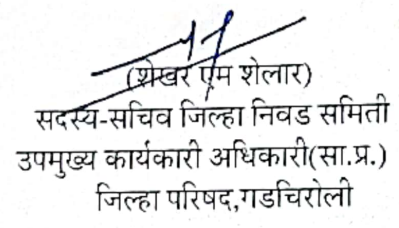 (शेखर एम शेलार)
सदस्य-सचिव जिल्हा निवड समिती
उपमुख्य कार्यकारी अधिकारी(सा.प्र.)
जिल्हा परिषद,गडचिरोली